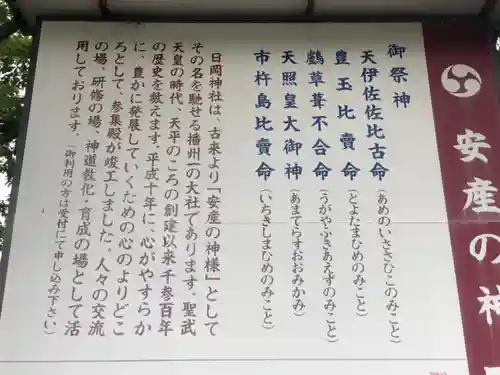 安産の神
御祭神
天伊佐佐比古命（あめのいささひこのみこと）
豊玉比賣命（とよたまひめのみこと）
鵜草葺不合命（うがやふきあえずのみこと）
天照皇大御神（あまてらすおおみかみ）
市杵島比賣命（いちきしまひめのみこと）
日岡神社は、古来より「安産の神様」として
その名を馳せる播州一の大社であります。聖武
天皇の時代、天平のころの創建以来千参百年
の歴史を数えます。平成十年に、心がやすらか
に、豊かに発展していくための心のよりどこ
ろとして、参集殿が竣工しました。人々の交流
の場、研修の場、神道教化・育成の場として活
用しております。（御利用の方は受付にて申し込み下さい）